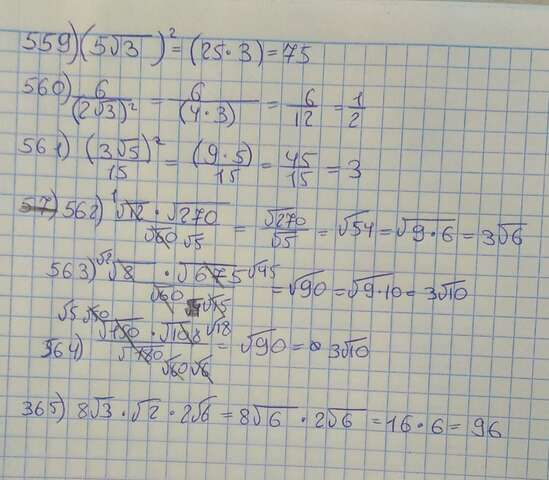 559) (5√3)² = (25·3) = 75
560) 6/(2√3)² = 6/(4·3) = 6/12 = 1/2
561) (3√5)²/15 = (9·5)/15 = 45/15 = 3
57) 562) 1 √12·√270/√60 √5 = √270/√5 = √54 = √9·6 = 3√6
563) √2 √8·√675 √45/√60 √15 = √90 = √9·10 = 3√10
√5 √50
364) √150·√108 √18/√180 √60 √6 = √90 = 3√10
365) 8√3·√2·2√6 = 8√6·2√6 = 16·6 = 96